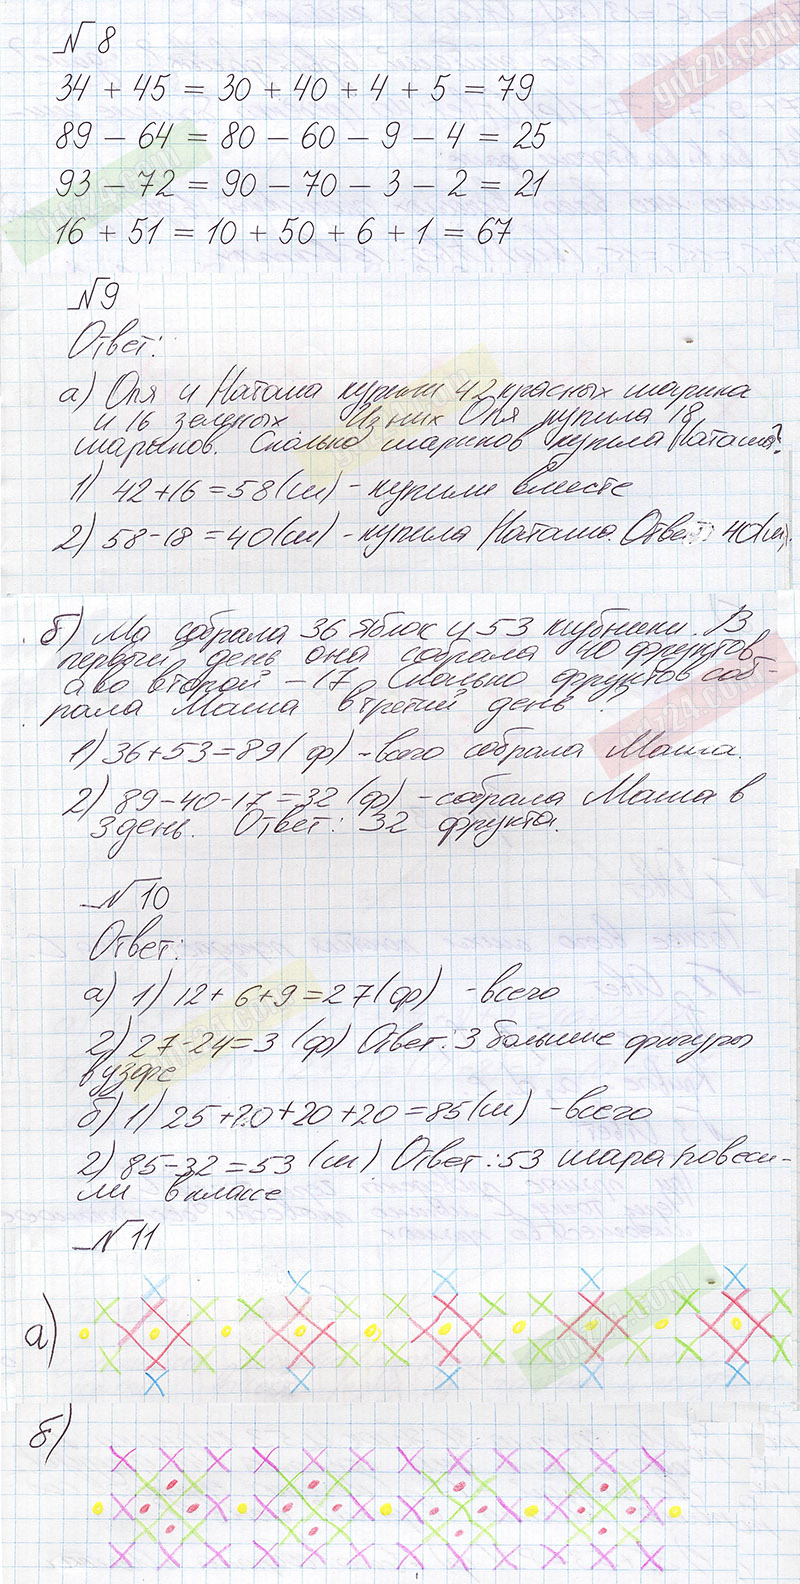 № 8
34 + 45 = 30 + 40 + 4 + 5 = 79
89 - 64 = 80 - 60 - 9 - 4 = 25
93 - 72 = 90 - 70 - 3 - 2 = 21
16 + 51 = 10 + 50 + 6 + 1 = 67
№ 9
Ответ:
а) Оля и Наташа купили 42 красных шарика
и 16 зеленых Из них Оля купила 18
шариков. Сколько шариков купила Наташа?
1) 42 + 16 = 58 (ш) - купили вместе
2) 58 - 18 = 40 (ш) - купила Наташа. Ответ: 40 (ш).
б) Ма собрала 36 яблок и 53 клубники. В
первый день она собрала 40 фруктов
а во второй - 17 Сколько фруктов соб-
рала Маша в третий день?
1) 36 + 53 = 89 (ф) - всего собрала Маша.
2) 89 - 40 - 17 = 32 (ф) - собрала Маша в
3 день. Ответ: 32 фрукта.
№ 10
Ответ:
а) 1) 12 + 6 + 9 = 27 (ф) - всего
2) 27 - 24 = 3 (ф) Ответ: 3 большие фигуры
в узоре
б) 1) 25 + 20 + 20 + 20 = 85 (ш) - всего
2) 85 - 32 = 53 (ш) Ответ: 53 шара повеси-
ли в классе
№ 11
а)
б)
ydz24.com
ydz24.com
ydz24.com
ydz24.com